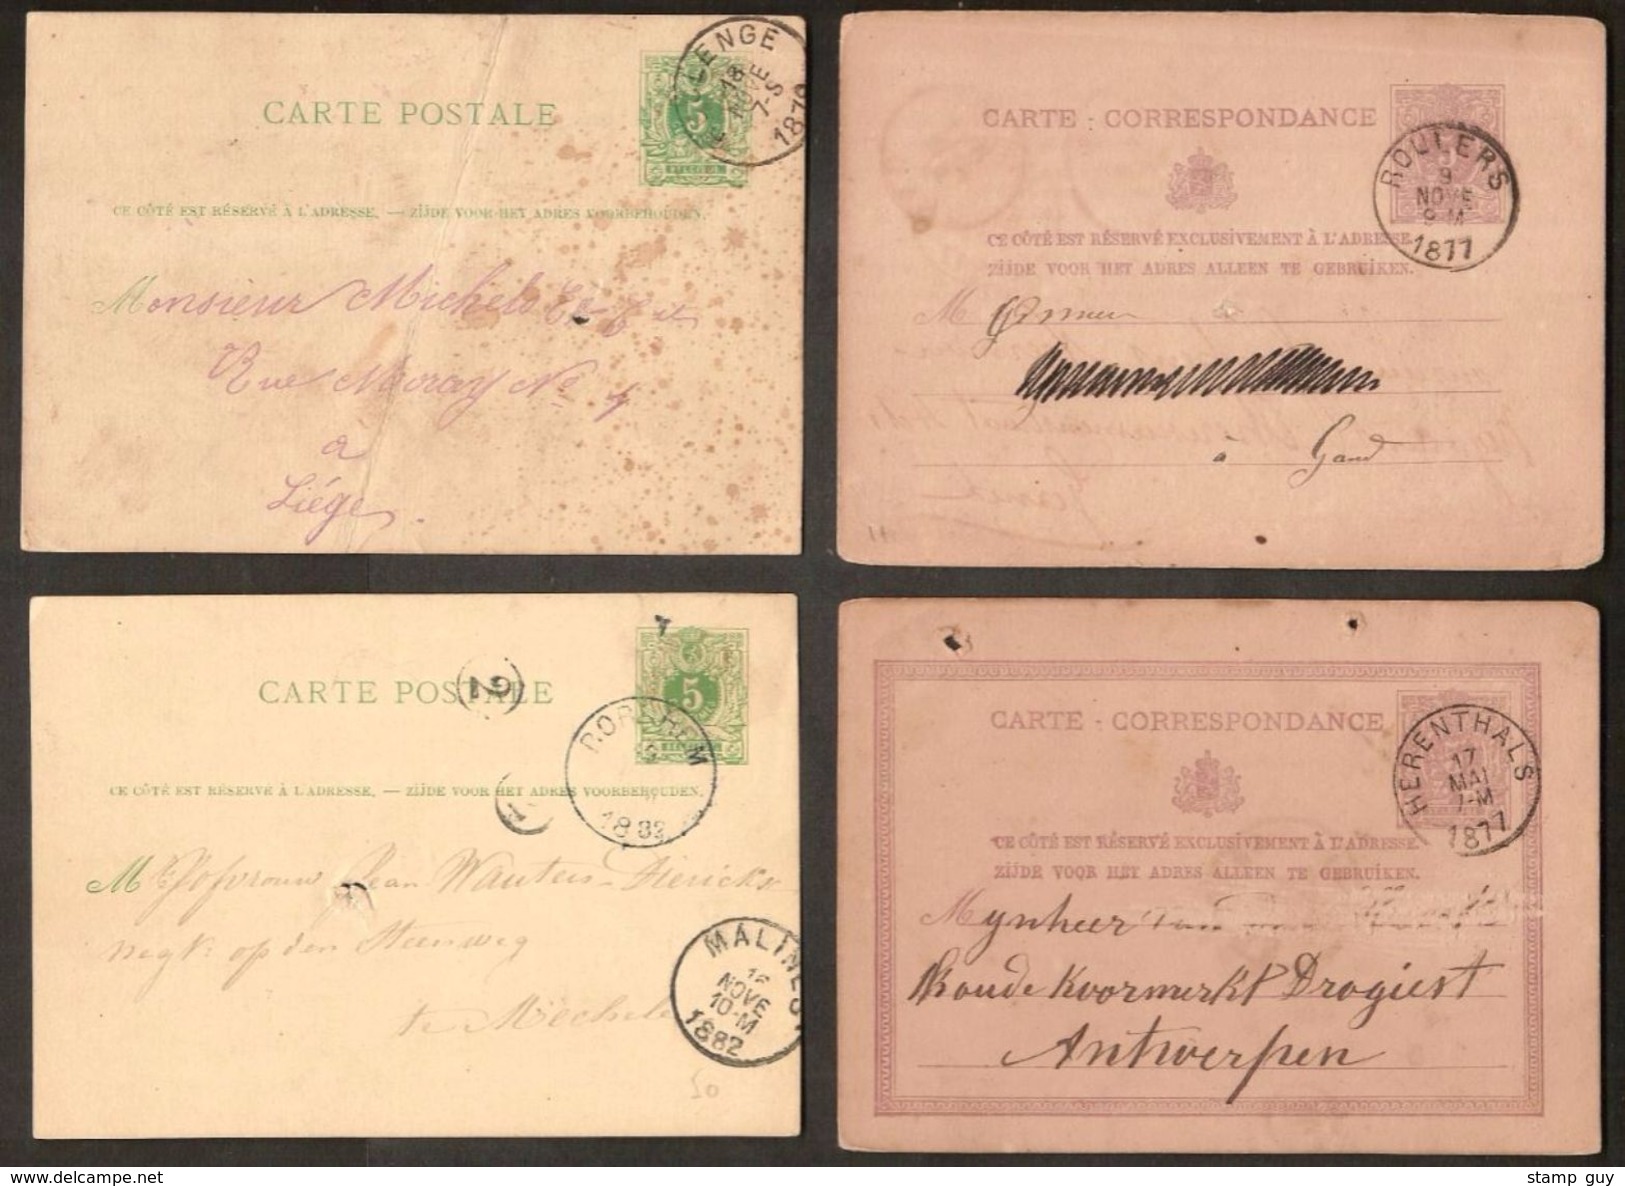 CARTE POSTALE
5
18
NOVE
7-S
CE CÔTÉ EST RÉSERVÉ À L'ADRESSE. — ZIJDE VOOR HET ADRES VOORBEHOUDEN.
Monsieur Michels
Rue Moray No 4
à
Liége.
CARTE - CORRESPONDANCE
ROULERS
9
NOVE
1877
CE CÔTÉ EST RÉSERVÉ EXCLUSIVEMENT À L'ADRESSE.
ZIJDE VOOR HET ADRES ALLEEN TE GEBRUIKEN.
M
à Gand
CARTE POSTALE
5
CE CÔTÉ EST RÉSERVÉ À L'ADRESSE. — ZIJDE VOOR HET ADRES VOORBEHOUDEN.
Mejofvrouw Jean Wauters-Dierickx
op den Steenweg
te Mechelen
MALINES
NOVE
10-M
1882
50
CARTE - CORRESPONDANCE
HERENTHALS
17
MAI
7-M
1877
CE CÔTÉ EST RÉSERVÉ EXCLUSIVEMENT À L'ADRESSE.
ZIJDE VOOR HET ADRES ALLEEN TE GEBRUIKEN.
Mynheer
Koornmerkt Drogiest
Antwerpen
stamp guy